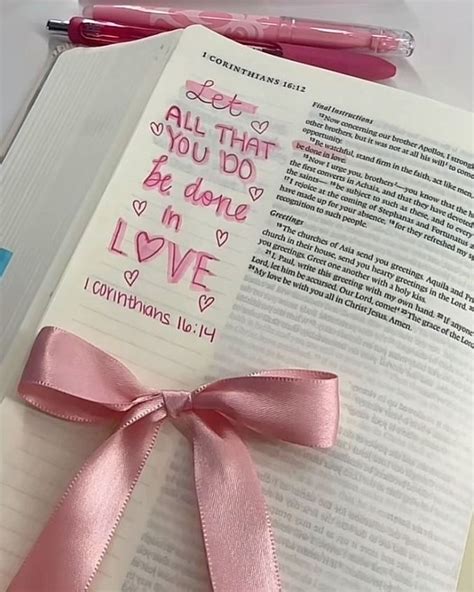 1 CORINTHIANS 16:12
Let
ALL THAT
YOU DO
be done
in
LOVE
1 corinthians 16:14
Final Instructions
12Now concerning our brother Apollos, I strongly
other brothers, but it was not at all his will to come
opportunity.
13Be watchful, stand firm in the faith, act like men
be done in love.
15Now I urge you, brothers—you know that the
the first converts in Achaia, and that they have devoted
the saints—16be subject to such as these, and to every
I rejoice at the coming of Stephanas and Fortunatus
have made up for your absence, 18for they refreshed my spirit
recognition to such people.
Greetings
19The churches of Asia send you greetings. Aquila and
church in their house, send you hearty greetings in the Lord.
you greetings. Greet one another with a holy kiss.
21I, Paul, write this greeting with my own hand. 22If anyone
Lord, let him be accursed. Our Lord, come! 23The grace of the Lord
24My love be with you all in Christ Jesus. Amen.